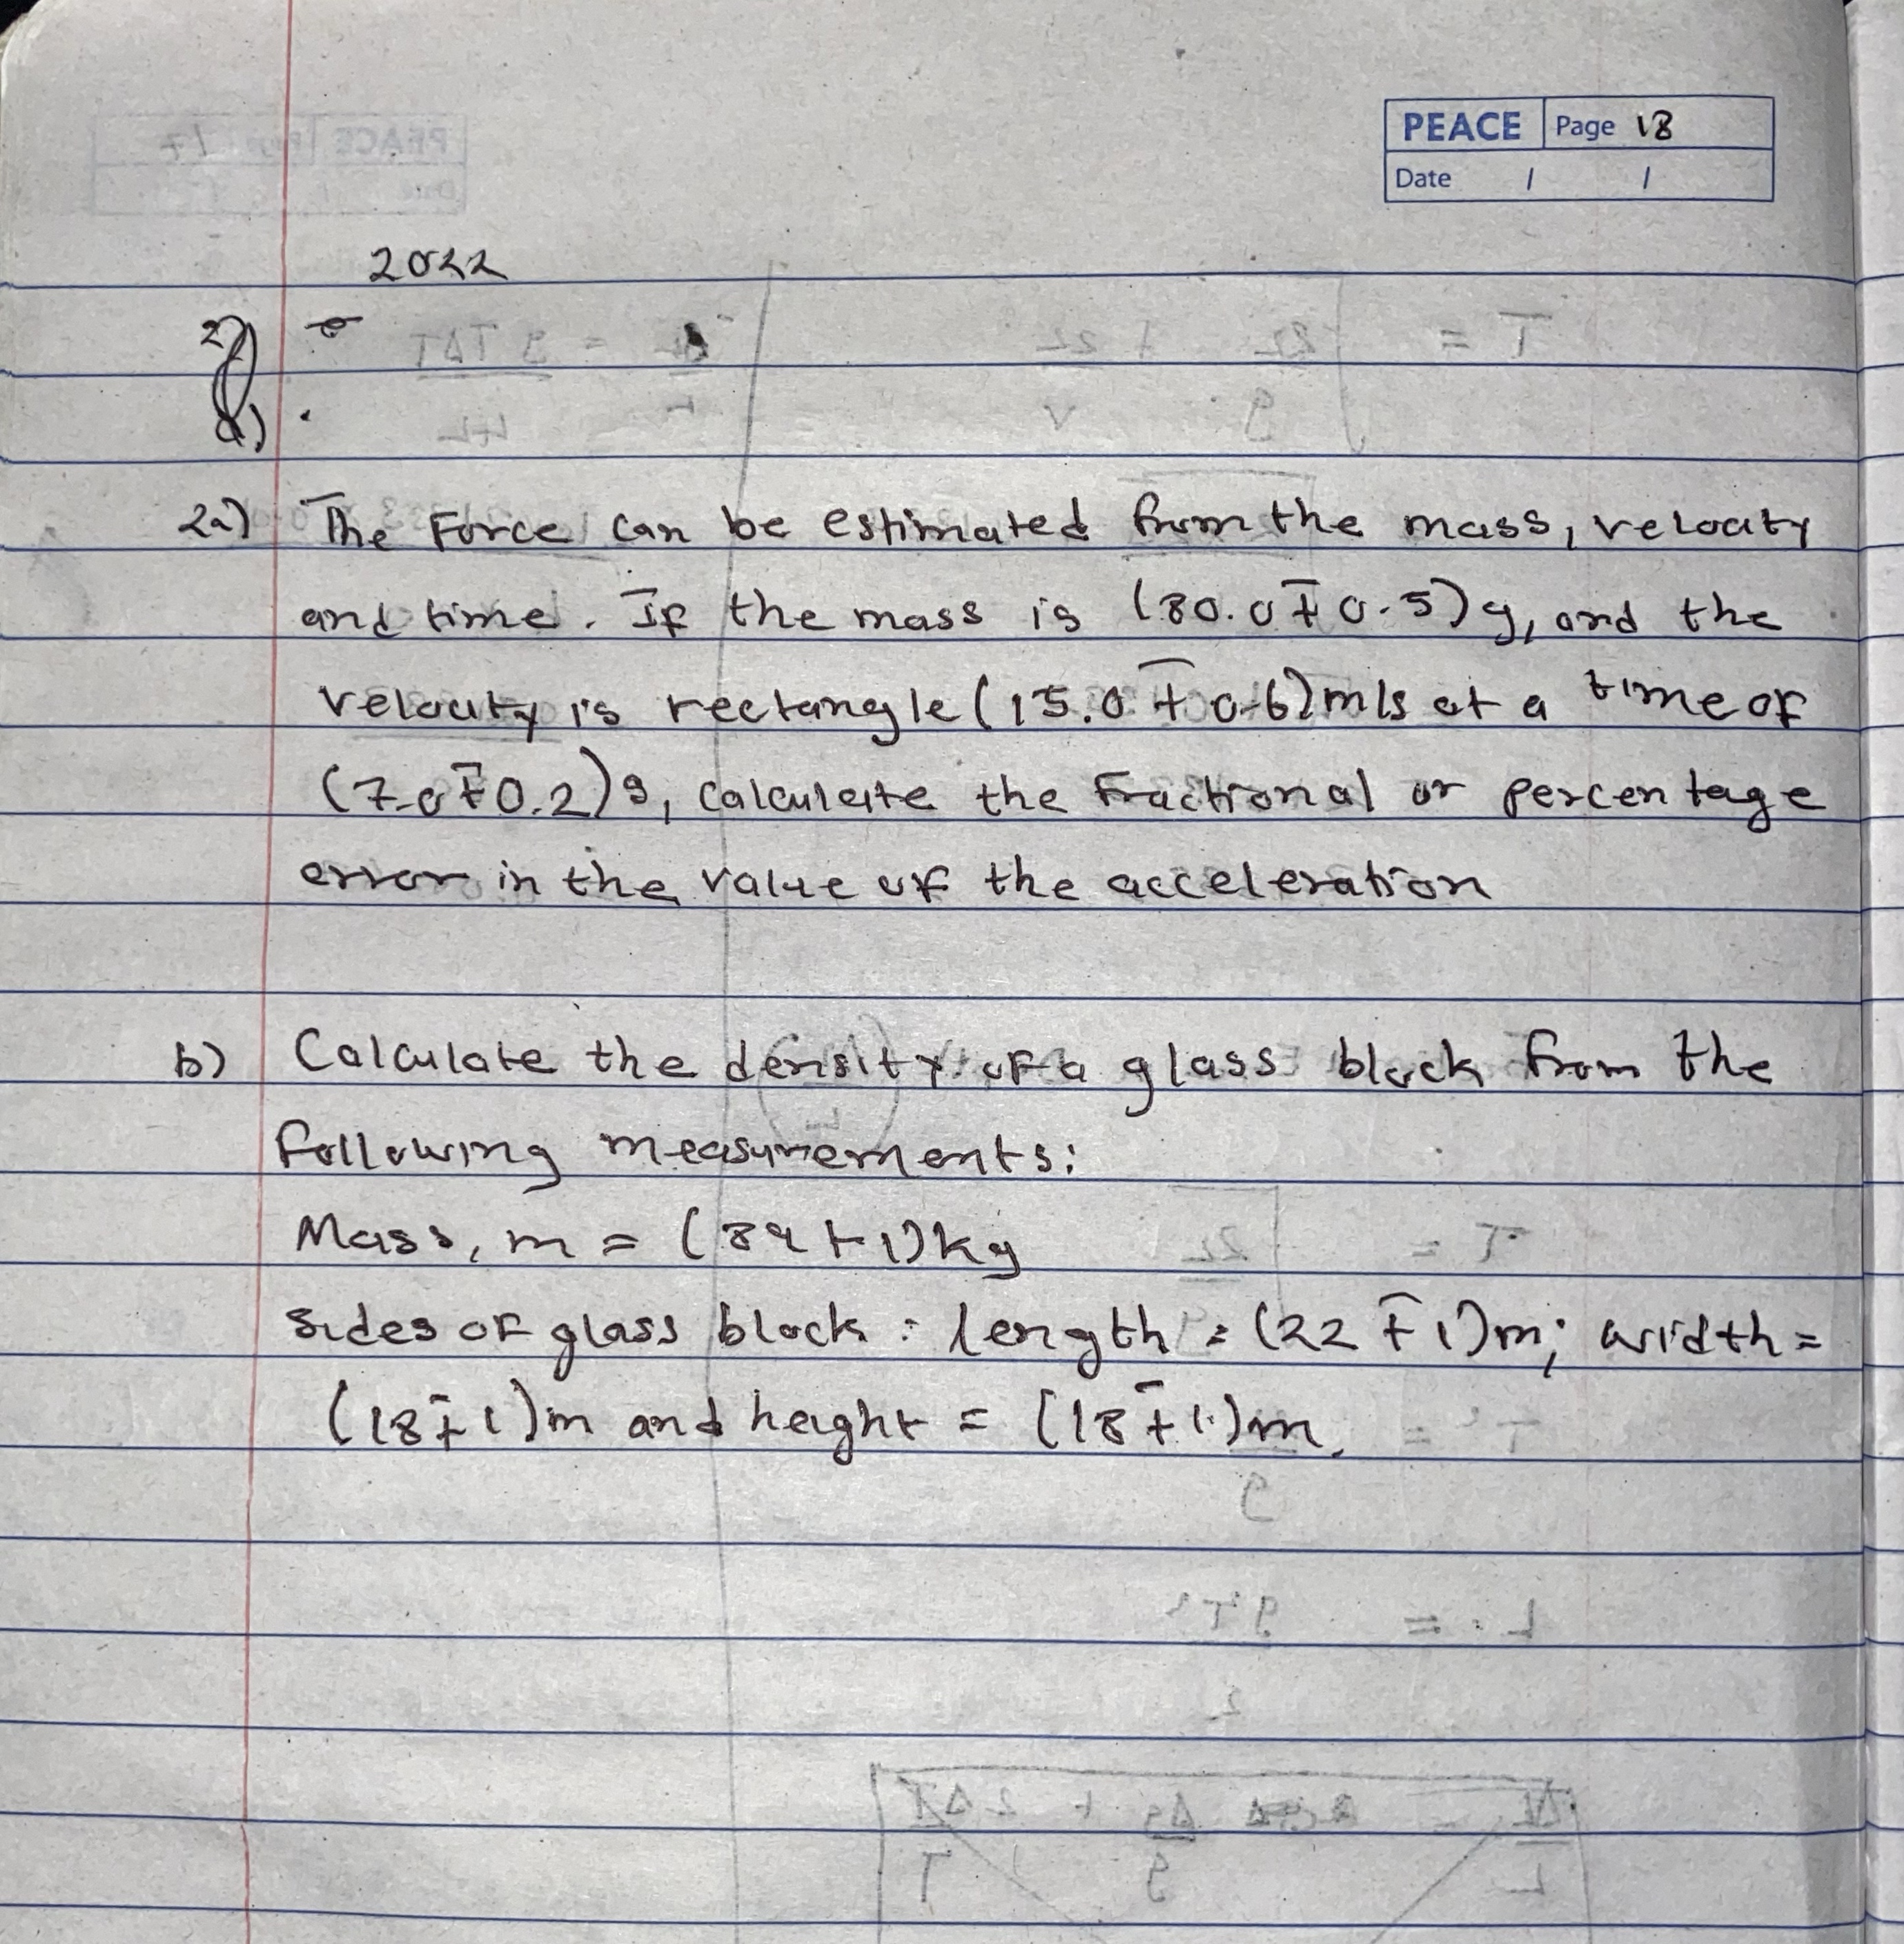 PEACE Page 18
Date / /
2022
2)
a) .
2a) The Force can be estimated from the mass, velocity
and time. If the mass is (80.0 ∓ 0.5)g, and the
velocity is rectangle (15.0 ∓ 0.6)m/s at a time of
(7.0 ∓ 0.2)s, calculate the fractional or percentage
error in the value of the acceleration
b) Calculate the density of a glass block from the
following measurements:
Mass, m = (84 + 1)kg
sides of glass block : length = (22 ∓ 1)m; width =
(18 ∓ 1)m and height = (18 ∓ 1)m.